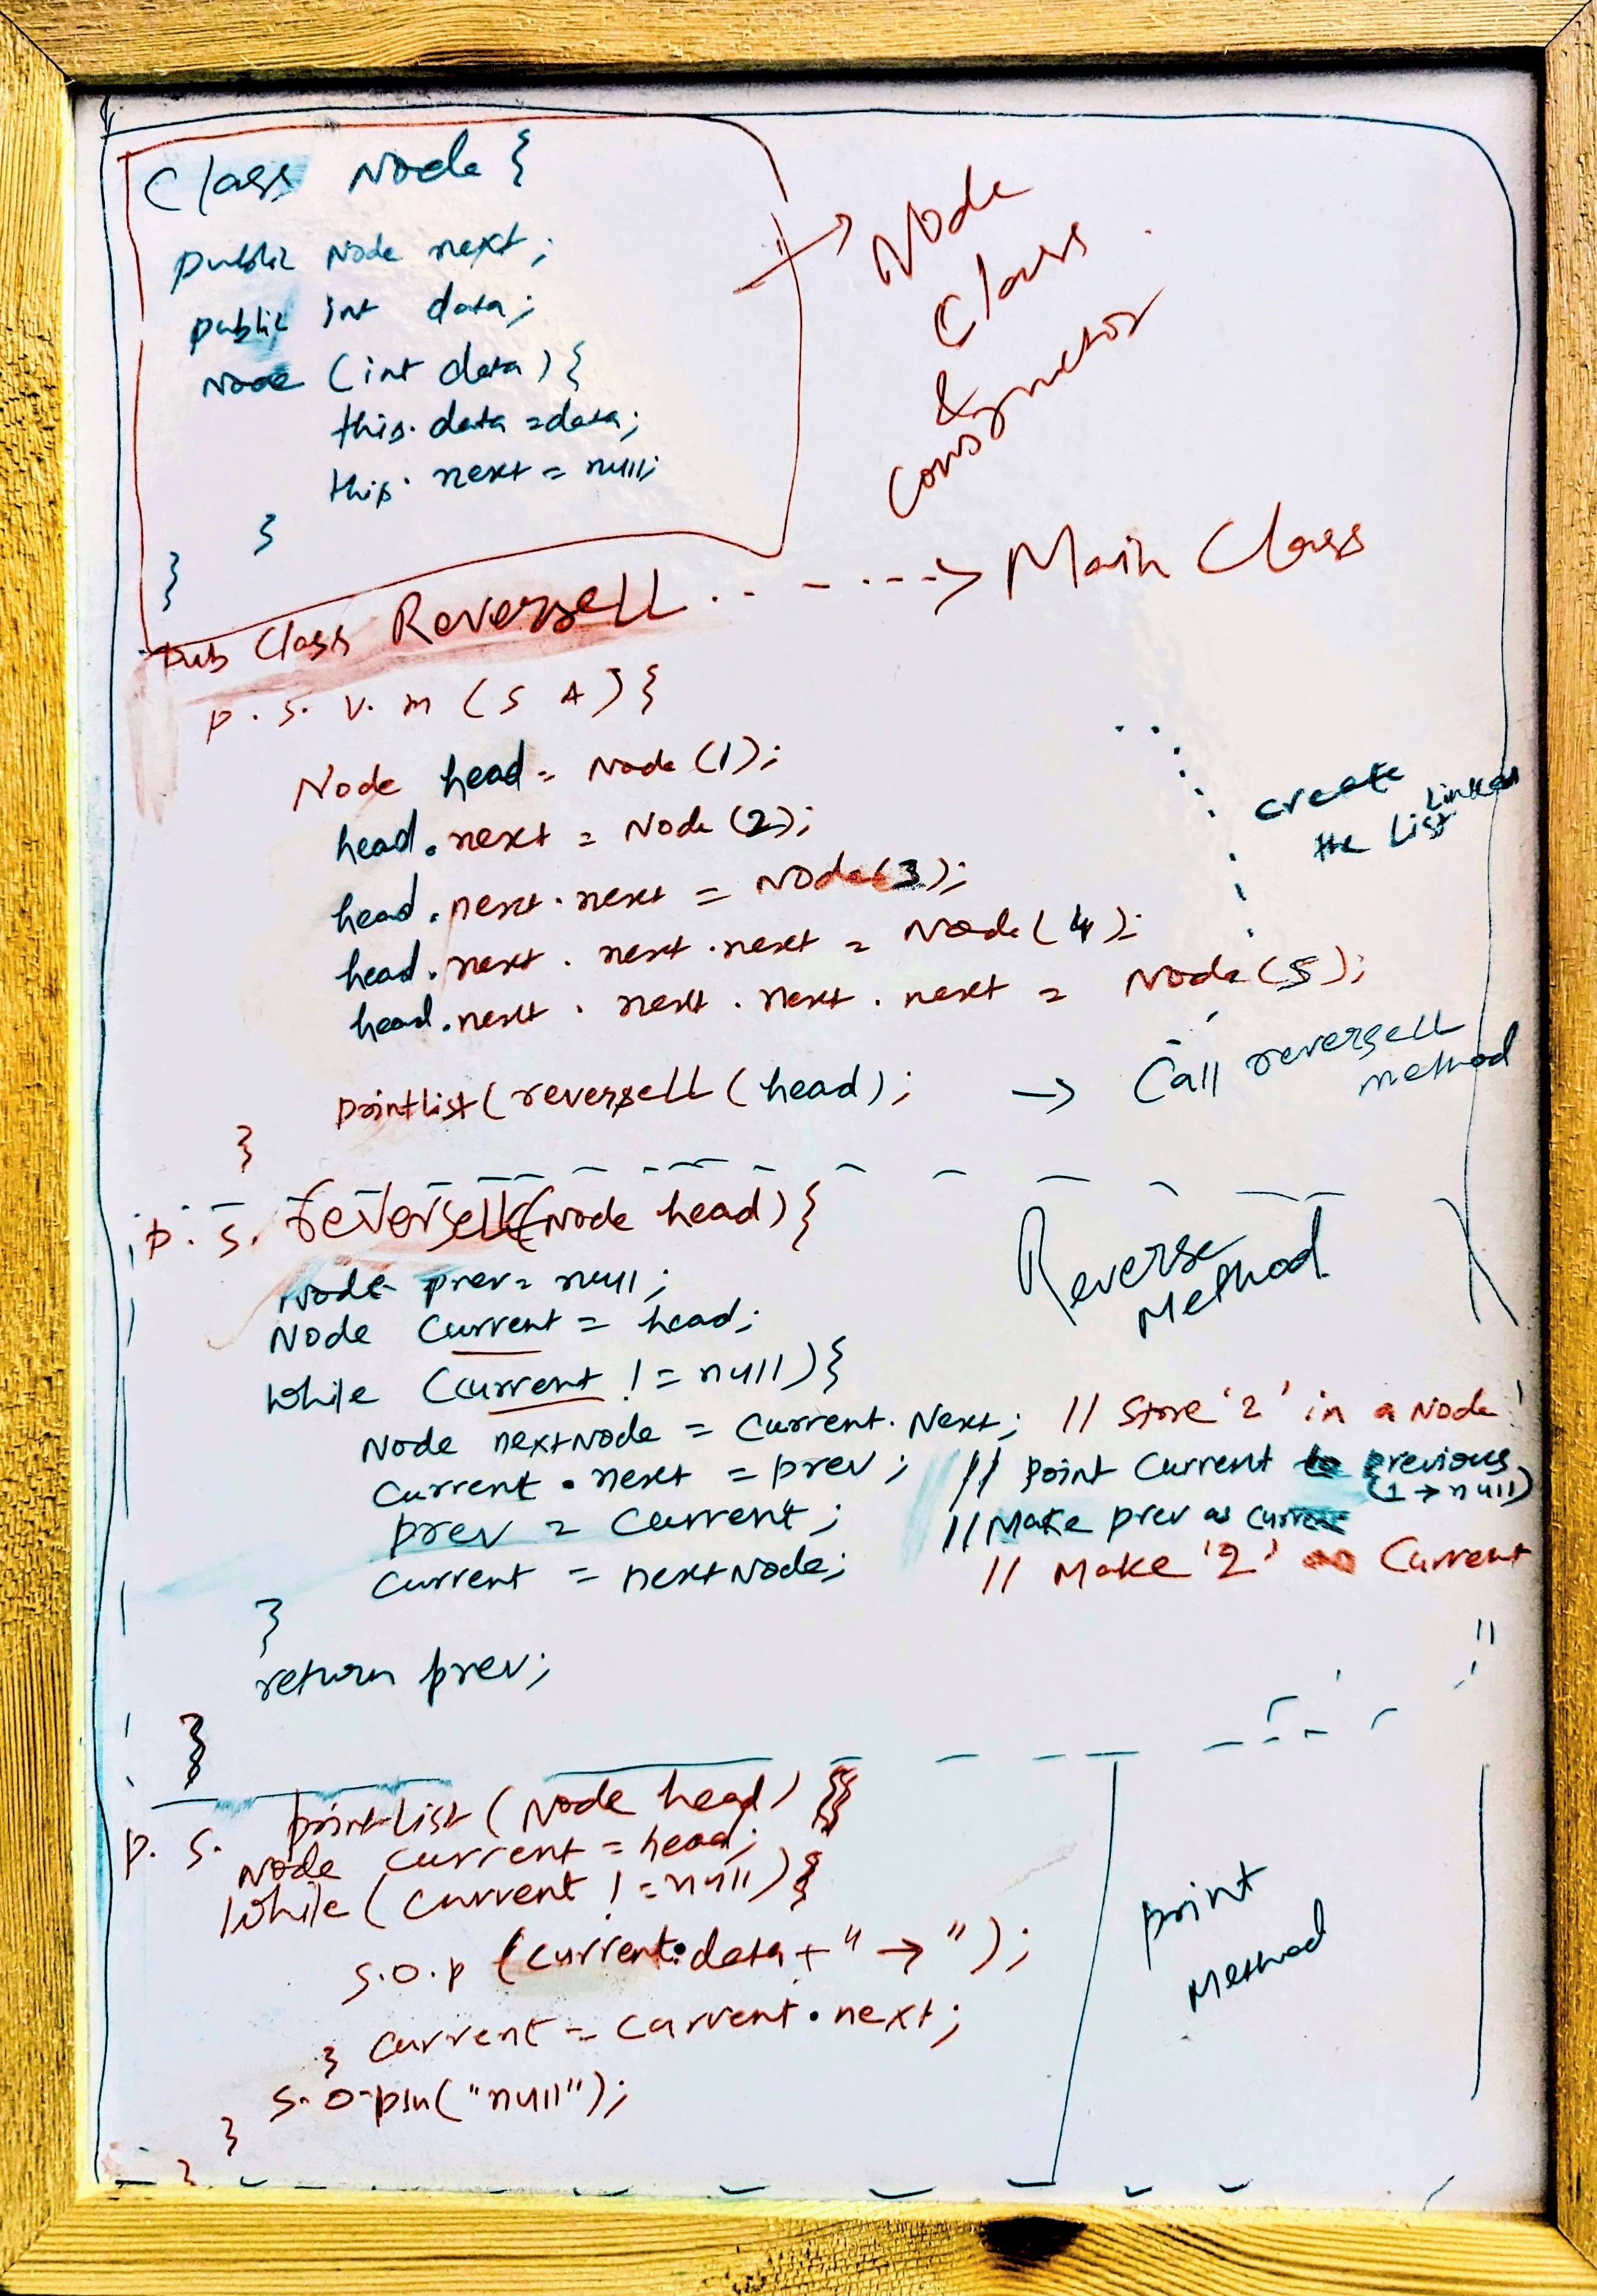 Class Node {
public Node next;
public int data;
Node (int data) {
this.data = data;
this.next = null;
}
}
Node
Class
&
Constructor
Pub Class ReverseLL . . - - - -> Main Class
p. s. v. m (S A) {
Node head = Node (1);
head.next = Node (2);
head.next.next = Node (3);
head.next.next.next = Node (4);
head.next.next.next.next = Node (5);
create
the Linked List
printList (reverseLL (head); → Call reverseLL
method
}
p. s. reverseLL (Node head) {
Reverse
Method
Node prev = null;
Node Current = head;
while (current != null) {
Node nextNode = Current.Next; // Store '2' in a Node
Current.next = prev; // point Current to previous
(1 → null)
prev = Current; // Make prev as current
Current = nextNode; // Make '2' as Current
}
return prev;
}
p. s. printList (Node head) {
Node current = head;
while (current != null) {
s.o.p (current.data + " → ");
} current = current.next;
s.o.pln("null");
}
}
print
Method